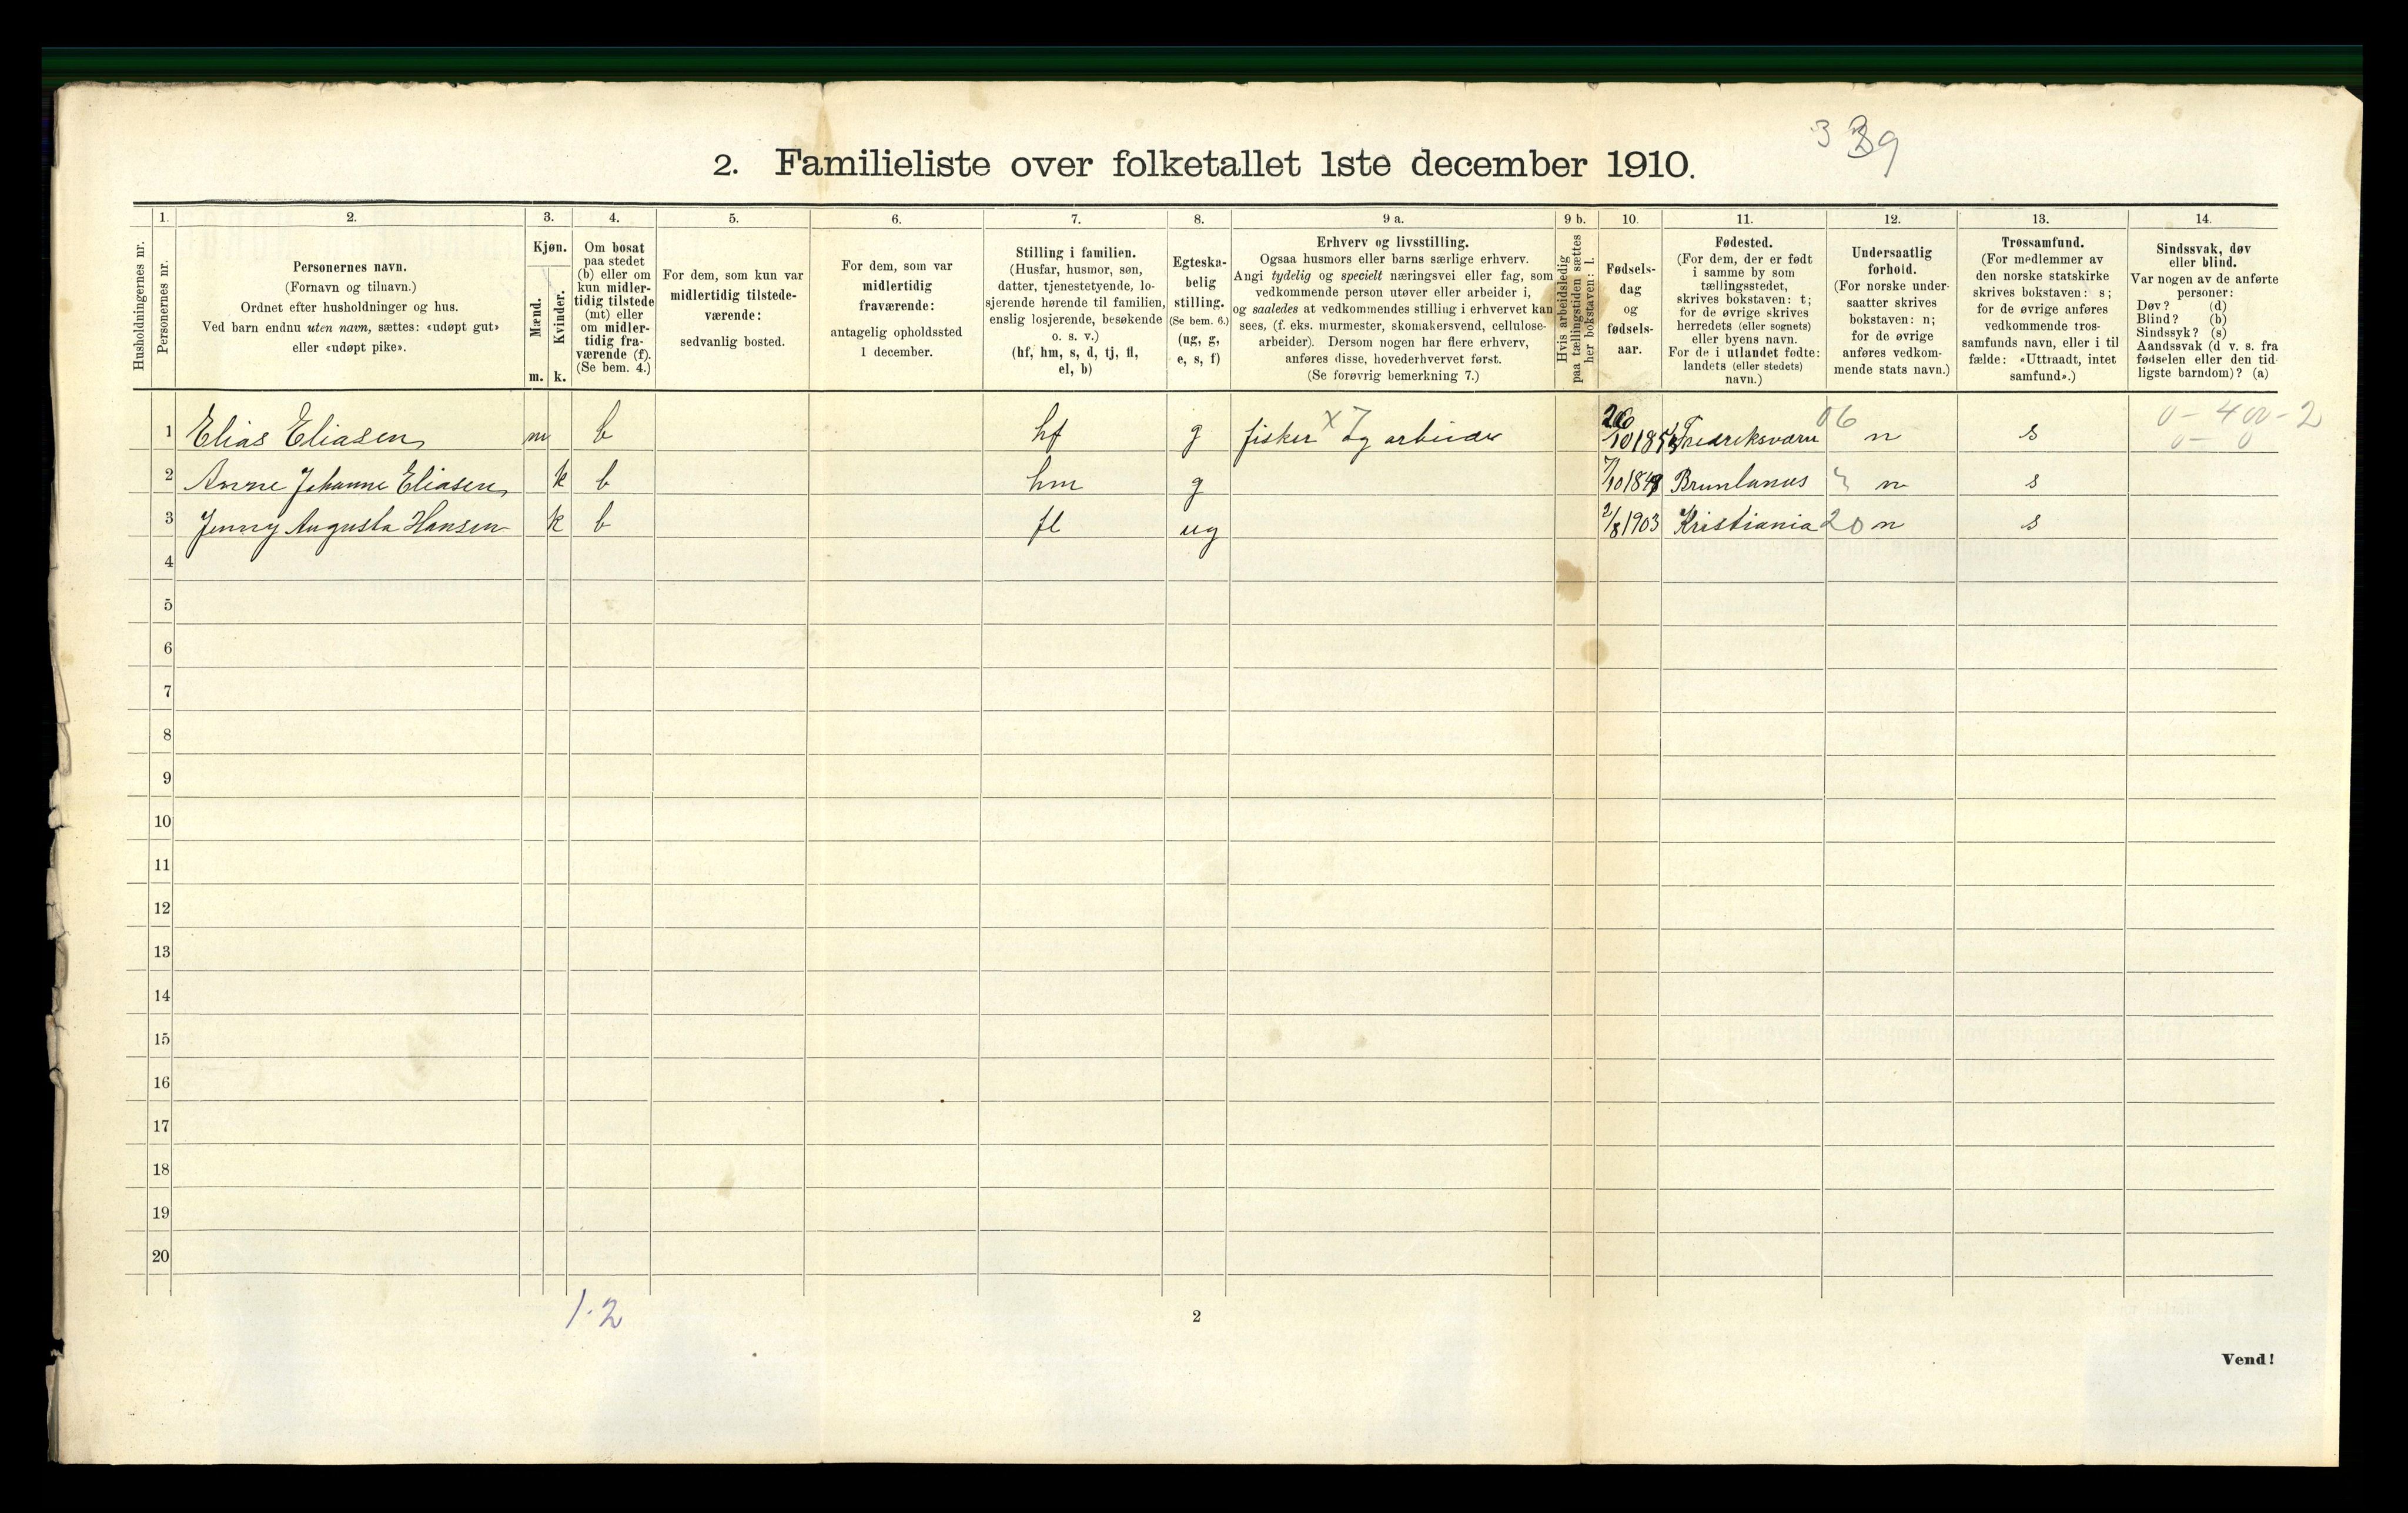 3 39
2. Familieliste over folketallet 1ste december 1910.
1. 2. 3. 4. 5. 6. 7. 8. 9 a. 9 b. 10. 11. 12. 13. 14.
Husholdningernes nr.
Personernes nr.
Personernes navn.
(Fornavn og tilnavn.)
Ordnet efter husholdninger og hus.
Ved barn endnu uten navn, sættes: «udøpt gut»
eller «udøpt pike».
Kjøn.
Mænd.
Kvinder.
m. k.
Om bosat
paa stedet
(b) eller om
kun midler-
tidig tilstede
(mt) eller
om midler-
tidig fra-
værende (f).
(Se bem. 4.)
For dem, som kun var
midlertidig tilstede-
værende:
sedvanlig bosted.
For dem, som var
midlertidig
fraværende:
antagelig opholdssted
1 december.
Stilling i familien.
(Husfar, husmor, søn,
datter, tjenestetyende, lo-
sjerende hørende til familien,
enslig losjerende, besøkende
o. s. v.)
(hf, hm, s, d, tj, fl,
el, b)
Egteska-
belig
stilling.
(Se bem. 6.)
(ug, g,
e, s, f)
Erhverv og livsstilling.
Ogsaa husmors eller barns særlige erhverv.
Angi tydelig og specielt næringsvei eller fag, som
vedkommende person utøver eller arbeider i,
og saaledes at vedkommendes stilling i erhvervet kan
sees, (f. eks. murmester, skomakersvend, cellulose-
arbeider). Dersom nogen har flere erhverv,
anføres disse, hovederhvervet først.
(Se forøvrig bemerkning 7.)
Hvis arbeidsledig
paa tællingstiden sættes
her bokstaven: l.
Fødsels-
dag
og
fødsels-
aar.
Fødested.
(For dem, der er født
i samme by som
tællingsstedet,
skrives bokstaven: t;
for de øvrige skrives
herredets (eller sognets)
eller byens navn.
For de i utlandet fødte:
landets (eller stedets)
navn.)
Undersaatlig
forhold.
(For norske under-
saatter skrives
bokstaven: n;
for de øvrige
anføres vedkom-
mende stats navn.)
Trossamfund.
(For medlemmer av
den norske statskirke
skrives bokstaven: s;
for de øvrige anføres
vedkommende tros-
samfunds navn, eller i til
fælde: «Uttraadt, intet
samfund».)
Sindssvak, døv
eller blind.
Var nogen av de anførte
personer:
Døv? (d)
Blind? (b)
Sindssyk? (s)
Aandssvak (d v. s. fra
fødselen eller den tid-
ligste barndom)? (a)
1 Elias Eliasen m b hf g fisker x og arbeider Fredriksværn 06 n s 0 - 400 - 2
0 - 0
2 Anne Johanne Eliasen k b hm g 7/10 1849 Brunlanes n s
3 Jenny Augusta Hansen k b fl ug 2/8 1903 Kristiania 20 n s
4
5
6
7
8
9
10
11
12
13
14
15
16
17
18
19
20
1-2
2
Vend!